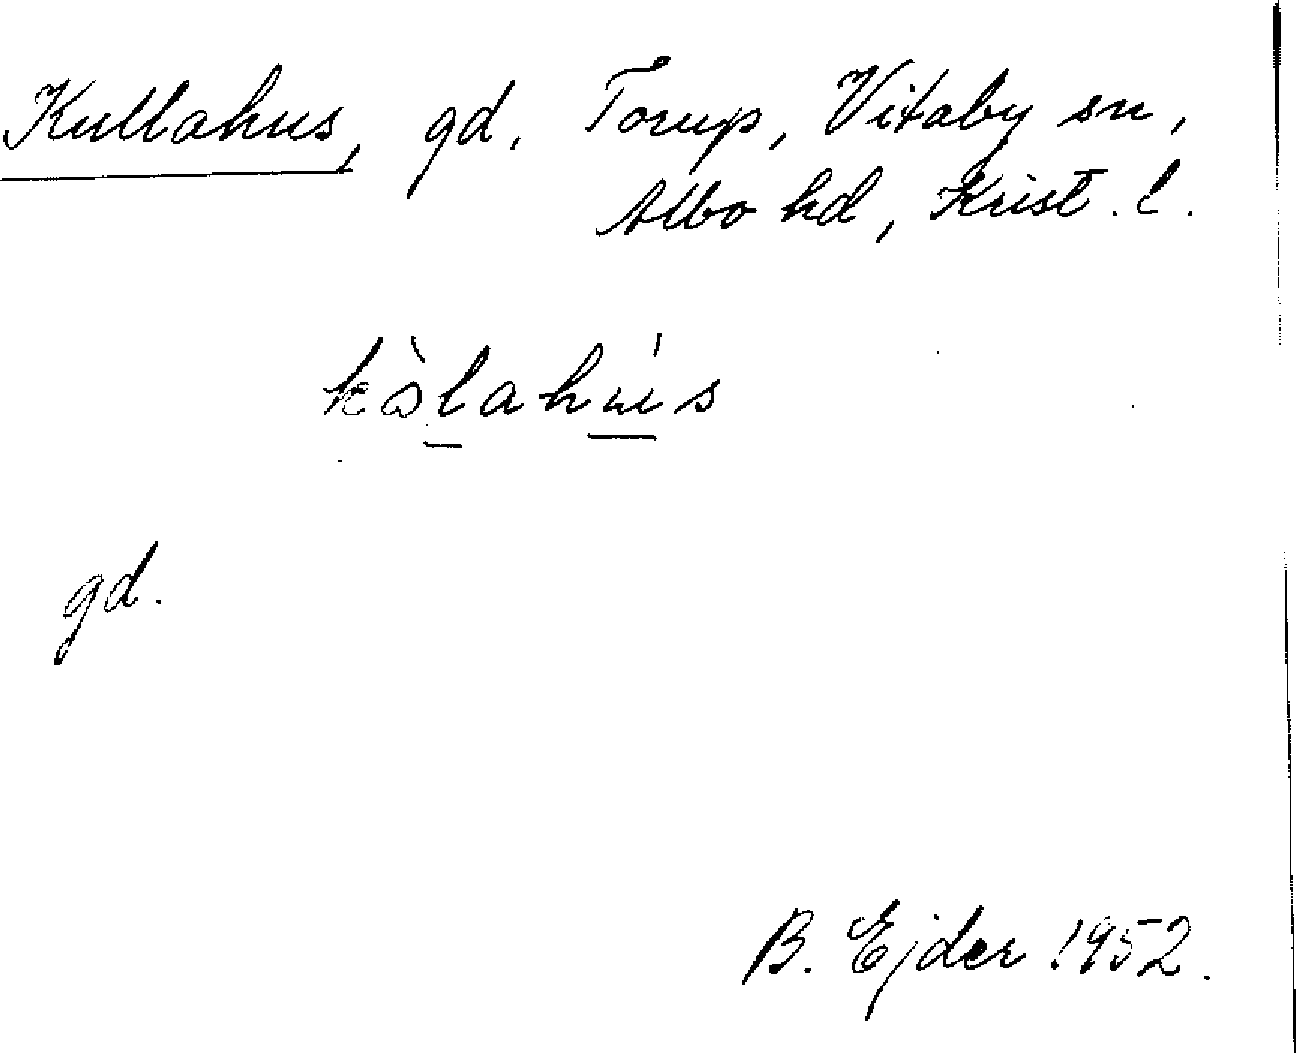 Kullahus, gd. Torup, Vitaby sn,
Albo hd, Krist. l.
kòlahús
gd.
B. Ejder 1952.